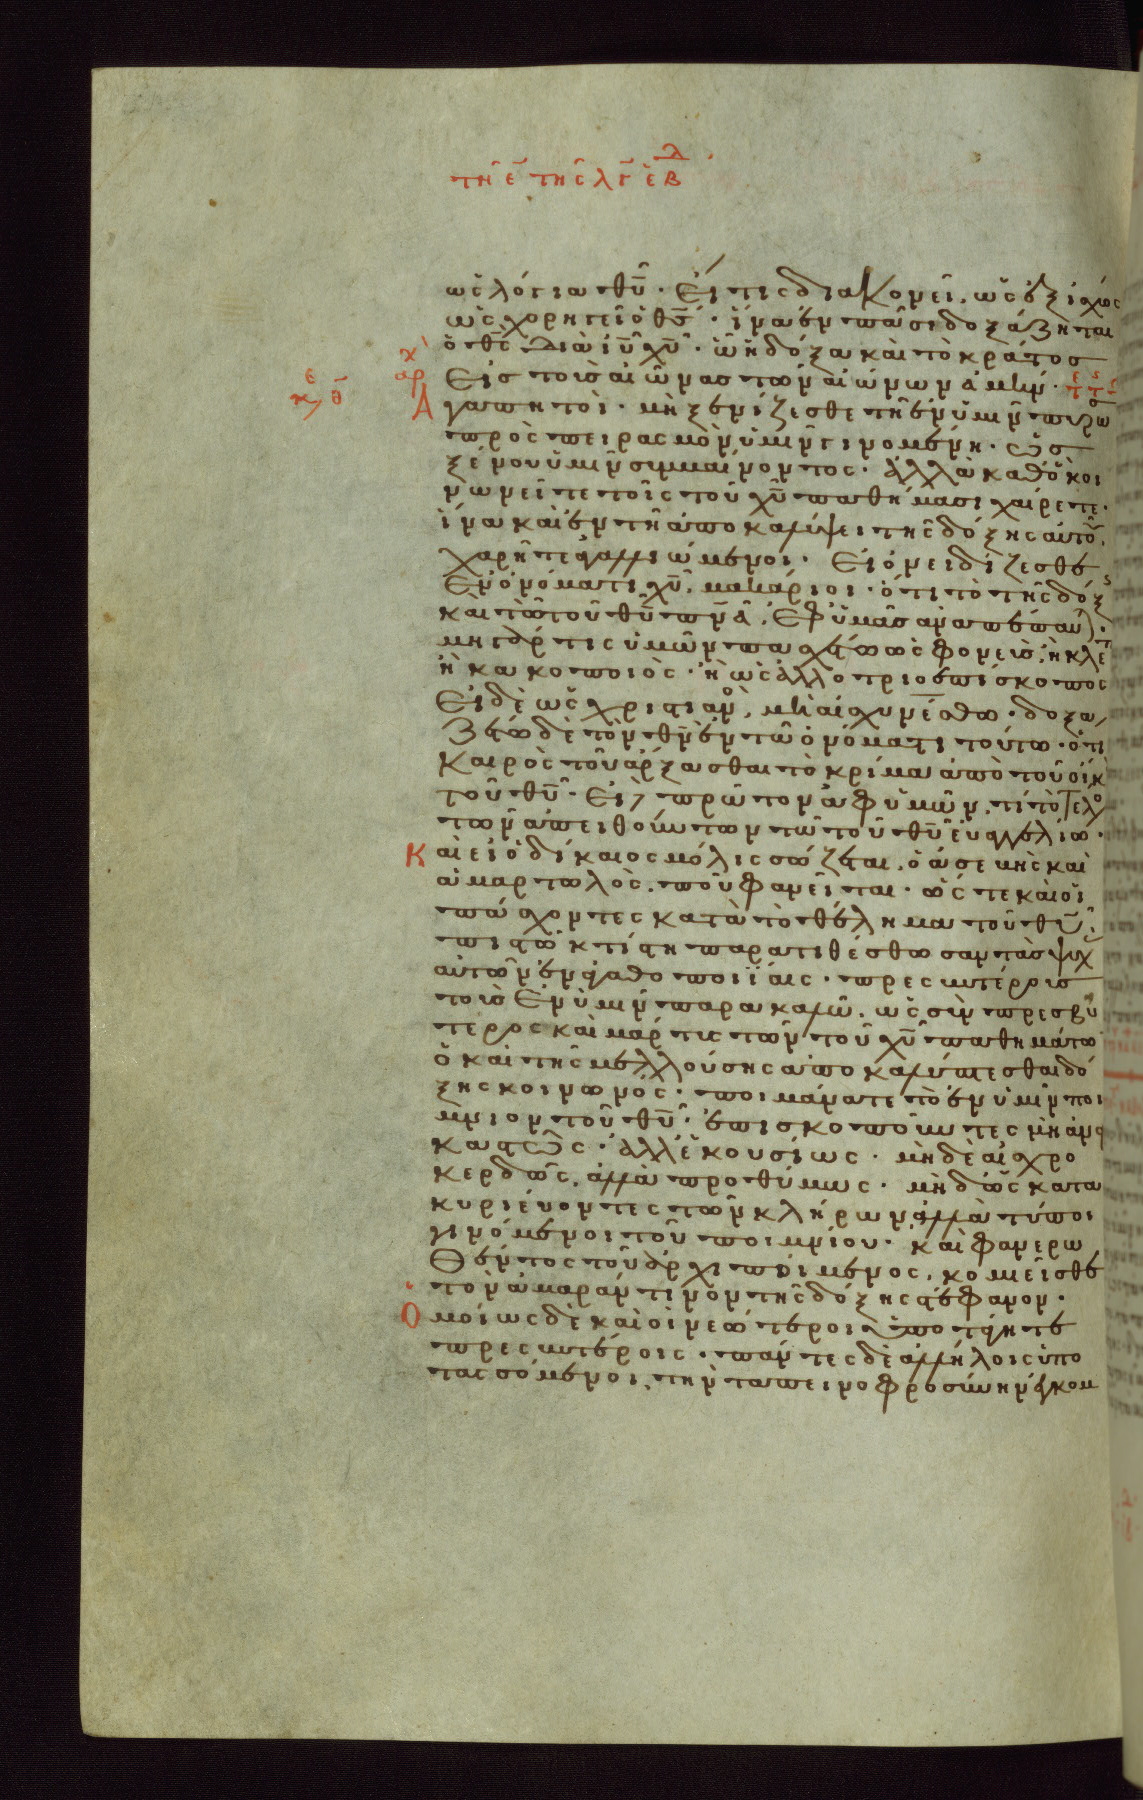 τῆ ε̄ τῆς λγ ἑβ
ὡς λόγια θυ̅· Εἴ τις διακονεῖ, ὡς ἐξ ἰσχύος
ὡς χορηγεῖ ὁ θς̅· ἵνα ἐν πᾶσι δοξάζηται
ὁ θς̅ διὰ ιυ̅ χυ̅· ᾧ ἡ δόξα καὶ τὸ κράτος
Εἰς τοὺς αἰῶνας τῶν αἰώνων ἀμήν·
Ἀγαπητοὶ· μὴ ξενίζεσθε τῆ ἐν ὑμῖν πυρώ
πρὸς πειρασμὸν ὑμῖν γινομένη· ὡς
ξένου ὑμῖν συμβαίνοντος· ἀλλὰ καθὸ κοι
νωνεῖτε τοῖς τοῦ χυ̅ παθήμασι χαίρετε·
ἵνα καὶ ἐν τῆ ἀποκαλύψει τῆς δόξης αὐτοῦ,
χαρῆτε ἀγαλλιώμενοι· Εἰ ὀνειδίζεσθε
Ἐν ὀνόματι χυ̅, μακάριοι· ὅτι τὸ τῆς δόξ
καὶ τὸ τοῦ θυ̅ πνα̅, Ἐφ ὑμᾶς ἀναπέπαυ·
μὴ γάρ τις ὑμῶν πασχέτω ὡς φονεὺς, ἢ κλέπ
ἢ κακοποιὸς· ἢ ὡς ἀλλοτριοεπίσκοπος
Εἰ δὲ ὡς χριστιανὸ, μὴ αἰσχυνέσθω· δοξα
Ζέτω δὲ τὸν θν̅ ἐν τῶ ὀνόματι τούτω· ὅτι
Καιρὸς τοῦ ἄρξασθαι τὸ κρίμα ἀπὸ τοῦ οἴκ
τοῦ θυ̅· Εἰ δὲ πρῶτον ἀφ ὑμῶν, τί τὸ τέλο
τῶν ἀπειθούντων τῶ τοῦ θυ̅ εὐαγγελίω·
Καὶ εἰ ὁ δίκαιος μόλις σώζεται, ὁ ἀσεβὴς καὶ
ἁμαρτωλὸς, ποῦ φανεῖται· ὥστε καὶ οἱ
πάσχοντες κατὰ τὸ θέλημα τοῦ θυ̅,
πιστῶ κτίστη παρατιθέσθωσαν τὰς ψυχ
αὐτῶν ἐν ἀγαθοποιΐαις· πρεσβυτέρους
τοὺς Ἐν ὑμῖν παρακαλῶ, ὡς συμπρεσβύ
τερος καὶ μάρτυς τῶν τοῦ χυ̅ παθημάτω
ὁ καὶ τῆς μελλούσης ἀποκαλύπτεσθαι δό
ξης κοινωνός· ποιμάνατε τὸ ἐν ὑμῖν ποί
μνιον τοῦ θυ̅· ἐπισκοποῦντες μὴ ἀναγ
καστῶς· ἀλλ ἑκουσίως· μὴ δὲ αἰσχρο
κερδῶς, ἀλλὰ προθύμως· μὴ δ ὡς κατα
κυριεύοντες τῶν κλήρων ἀλλὰ τύποι
γινόμενοι τοῦ ποιμνίου· καὶ φανερω
Θέντος τοῦ ἀρχιποίμενος, κομιεῖσθε
τὸν ἀμαράντινον τῆς δόξης στέφανον·
Ὁμοίως δὲ καὶ οἱ νεώτεροι ὑποτάγητε
πρεσβυτέροις· πάντες δὲ ἀλλήλοις ὑπο
τασσόμενοι, τὴν ταπεινοφροσύνην ἐγκομ